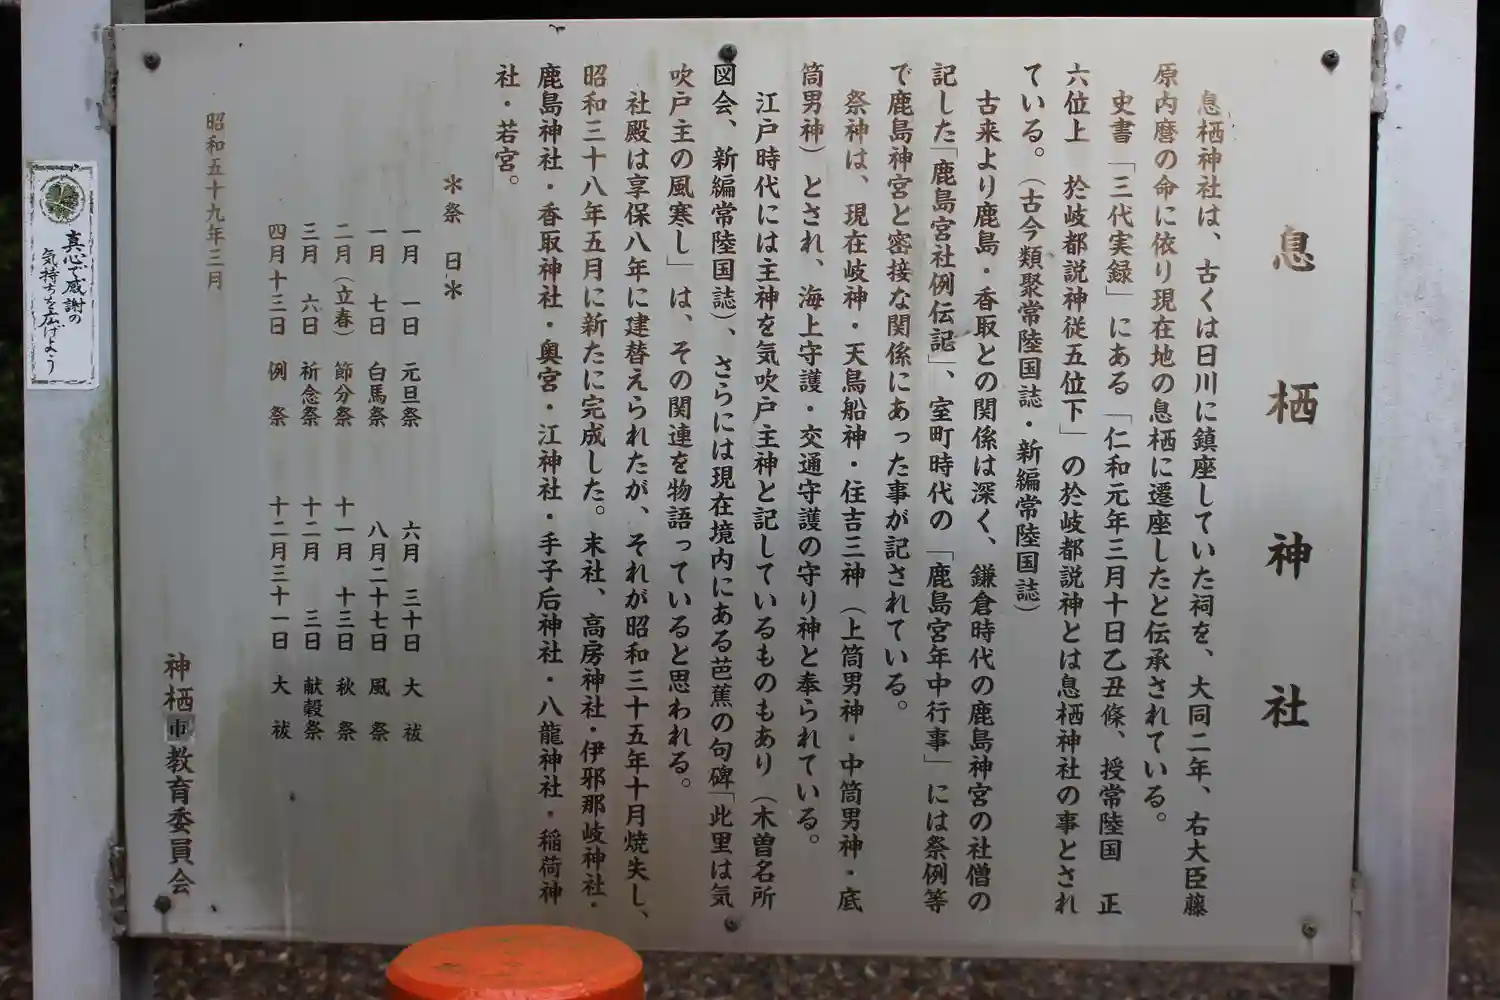 息栖神社
息栖神社は、古くは日川に鎮座していた祠を、大同二年、右大臣藤
原内麿の命に依り現在地の息栖に遷座したと伝承されている。
史書「三代実録」にある「仁和元年三月十日乙丑條、授常陸国 正
六位上 於岐都説神従五位下」の於岐都説神とは息栖神社の事とされ
ている。（古今類聚常陸国誌・新編常陸国誌）
古来より鹿島・香取との関係は深く、鎌倉時代の鹿島神宮の社僧の
記した「鹿島宮社例伝記」、室町時代の「鹿島宮年中行事」には祭例等
で鹿島神宮と密接な関係にあった事が記されている。
祭神は、現在岐神・天鳥船神・住吉三神（上筒男神・中筒男神・底
筒男神）とされ、海上守護・交通守護の守り神と奉られている。
江戸時代には主神を気吹戸主神と記しているものもあり（木曽名所
図会、新編常陸国誌）、さらには現在境内にある芭蕉の句碑「此里は気
吹戸主の風寒し」は、その関連を物語っていると思われる。
社殿は享保八年に建替えられたが、それが昭和三十五年十月焼失し、
昭和三十八年五月に新たに完成した。末社、高房神社・伊邪那岐神社・
鹿島神社・香取神社・奥宮・江神社・手子后神社・八龍神社・稲荷神
社・若宮。
＊祭 日＊
一月 一日 元旦祭 六月 三十日 大 祓
一月 七日 白馬祭 八月二十七日 風 祭
二月（立春） 節分祭 十一月 十三日 秋 祭
三月 六日 祈念祭 十二月 三日 献穀祭
四月十三日 例 祭 十二月三十一日 大 祓
昭和五十九年三月
神栖市教育委員会
真心で感謝の
気持ちを広げよう